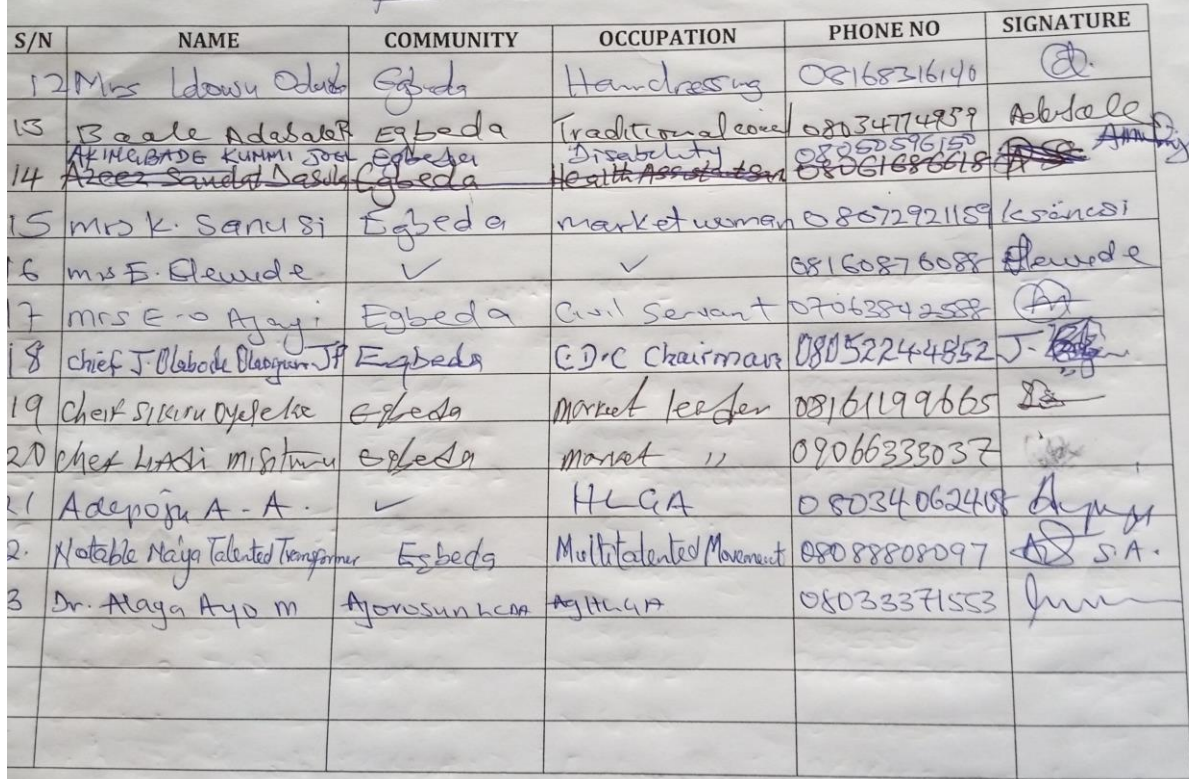 S/N NAME COMMUNITY OCCUPATION PHONE NO SIGNATURE
12 Mrs Idowu Egbeda Hairdressing 08168316140
13 Baale Adasale Egbeda Traditional 08034774959 Adasale
AKINGBADE KUNMI JOEL Egbeda Disability 08050596150
14 Azeez Egbeda Health 08061686618
15 mrs K. Sanusi Egbeda market woman 08072921159 ksanusi
6 mrs E. Elewude ✓ ✓ 08160876088 Elewude
17 mrs E-O Ajayi Egbeda Civil Servant 07063842588
18 Chief J. Olabode JP Egbeda C.D.C Chairman 08052244852 J.
19 Cheif Sikiru Oyeleke Egbeda market leader 08161199665
20 Chef Egbeda market " 09066333037
21 Adepoju A-A. ✓ HLGA 08034062408
2. Notable Naija Talented Transformer Egbeda Multitalented Movement 08088808097 S.A.
3 Dr. Alaga Ayo m Ajorosun LCDA Ag HLGA 08033371553